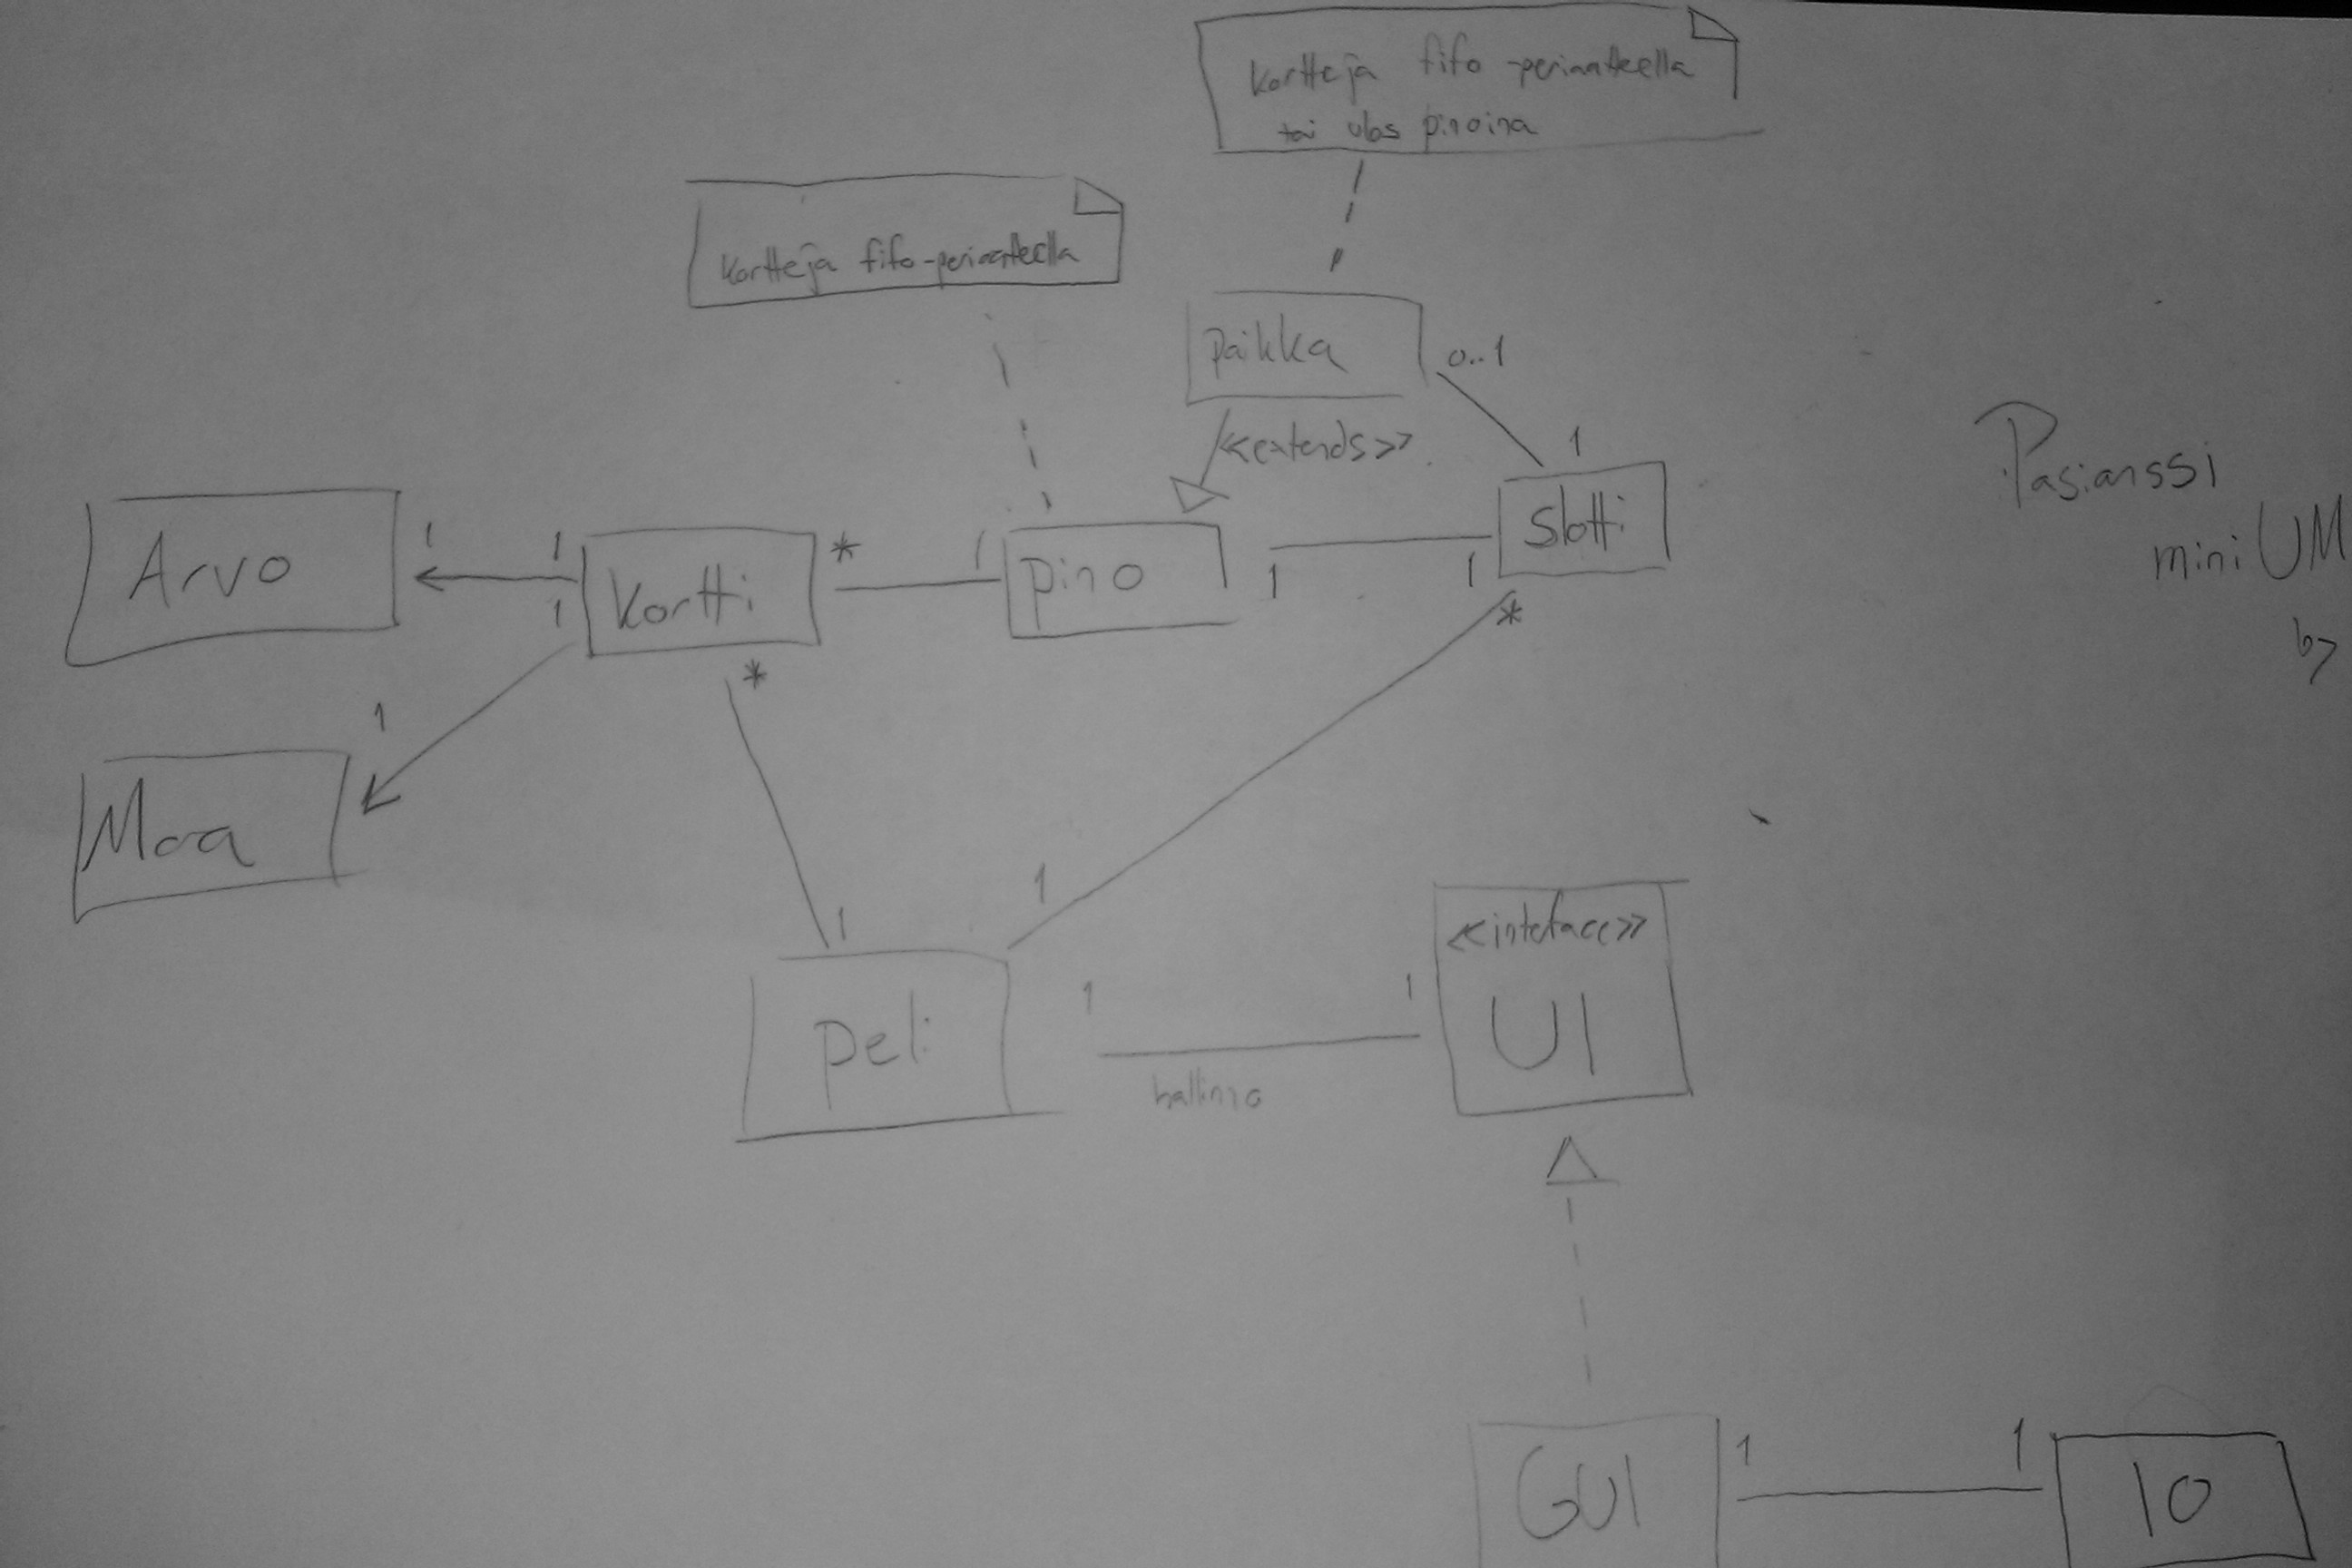 kortteja fifo -periaatteella
tai ulos pinoina
kortteja fifo-periaatteella
paikka
0..1
<<extends>>
1
Pasianssi
mini UM
by
Arvo
1
1
1
kortti
*
1
pino
1
1
slotti
*
*
1
Maa
1
1
peli
1
1
hallinno
<<inteface>>
UI
GUI
1
1
IO